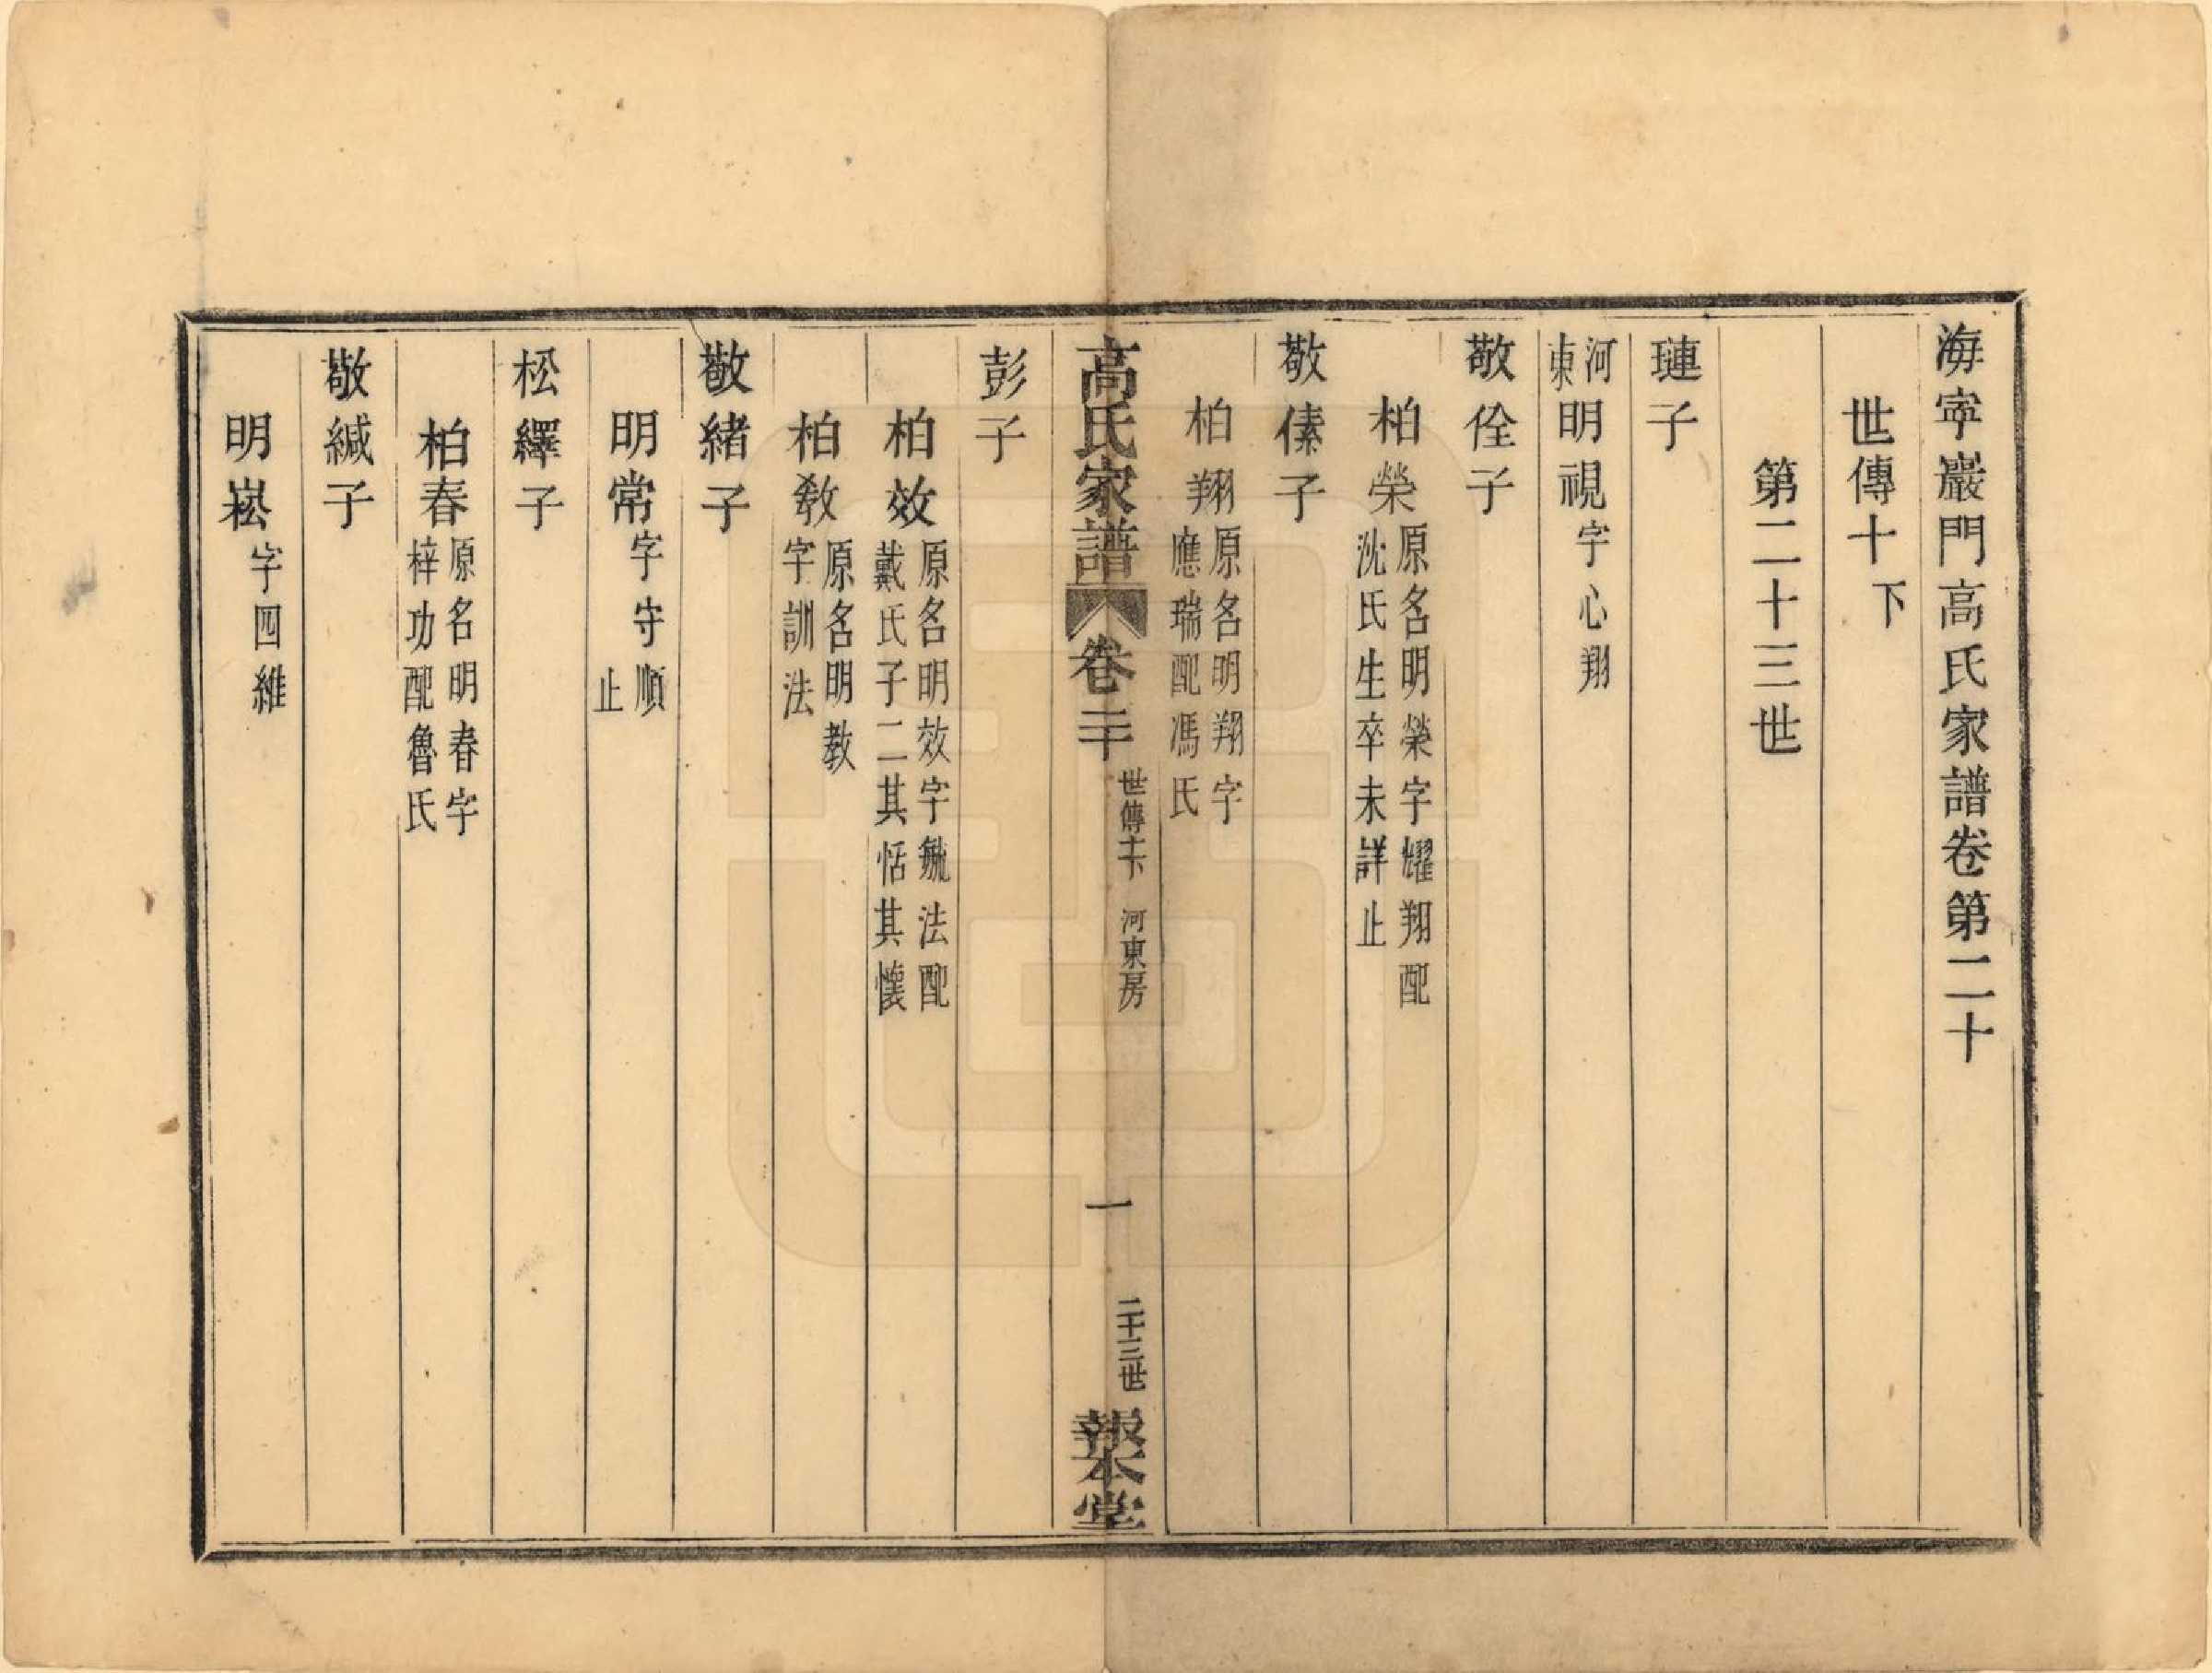 海寧巖門高氏家譜卷第二十
世傳十下
第二十三世
璉子
河東明視字心翔
敬佺子
柏榮原名明榮字耀翔配
沈氏生卒未詳止
敬傃子
柏翔原名明翔字
應瑞配馮氏
高氏家譜 卷二十 世傳十下 河東房 一 二十三世 報本堂
彭子
柏效原名明效字毓法配
戴氏子二其恬其懷
柏教原名明教
字訓法
敬緒子
明常字守順
止
松繹子
柏春原名明春字
梓功配魯氏
敬緘子
明崧字四維